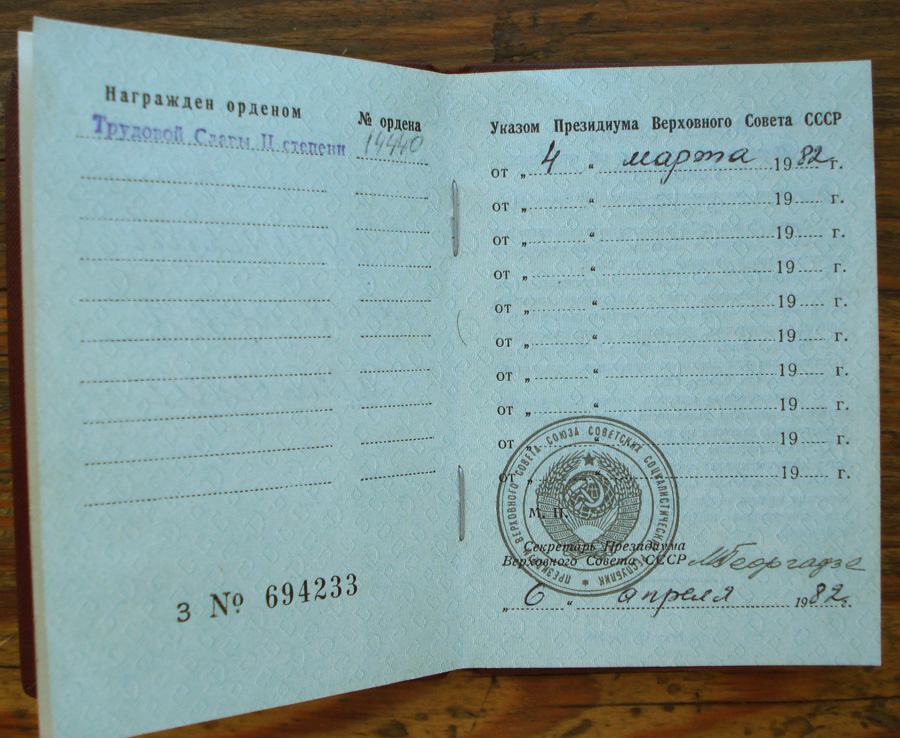 Награжден орденом
№ ордена
Трудовой Славы II степени
14440
З № 694233
Указом Президиума Верховного Совета СССР
от „ 4 “ марта 1982 г.
от „ “ 19 г.
от „ “ 19 г.
от „ “ 19 г.
от „ “ 19 г.
от „ “ 19 г.
от „ “ 19 г.
от „ “ 19 г.
от „ “ 19 г.
от „ “ 19 г.
ПРЕЗИДИУМ ВЕРХОВНОГО СОВЕТА СОЮЗА СОВЕТСКИХ СОЦИАЛИСТИЧЕСКИХ РЕСПУБЛИК
М. П.
Секретарь Президиума
Верховного Совета СССР МГеоргадзе
„ 6 “ апреля 1982 г.